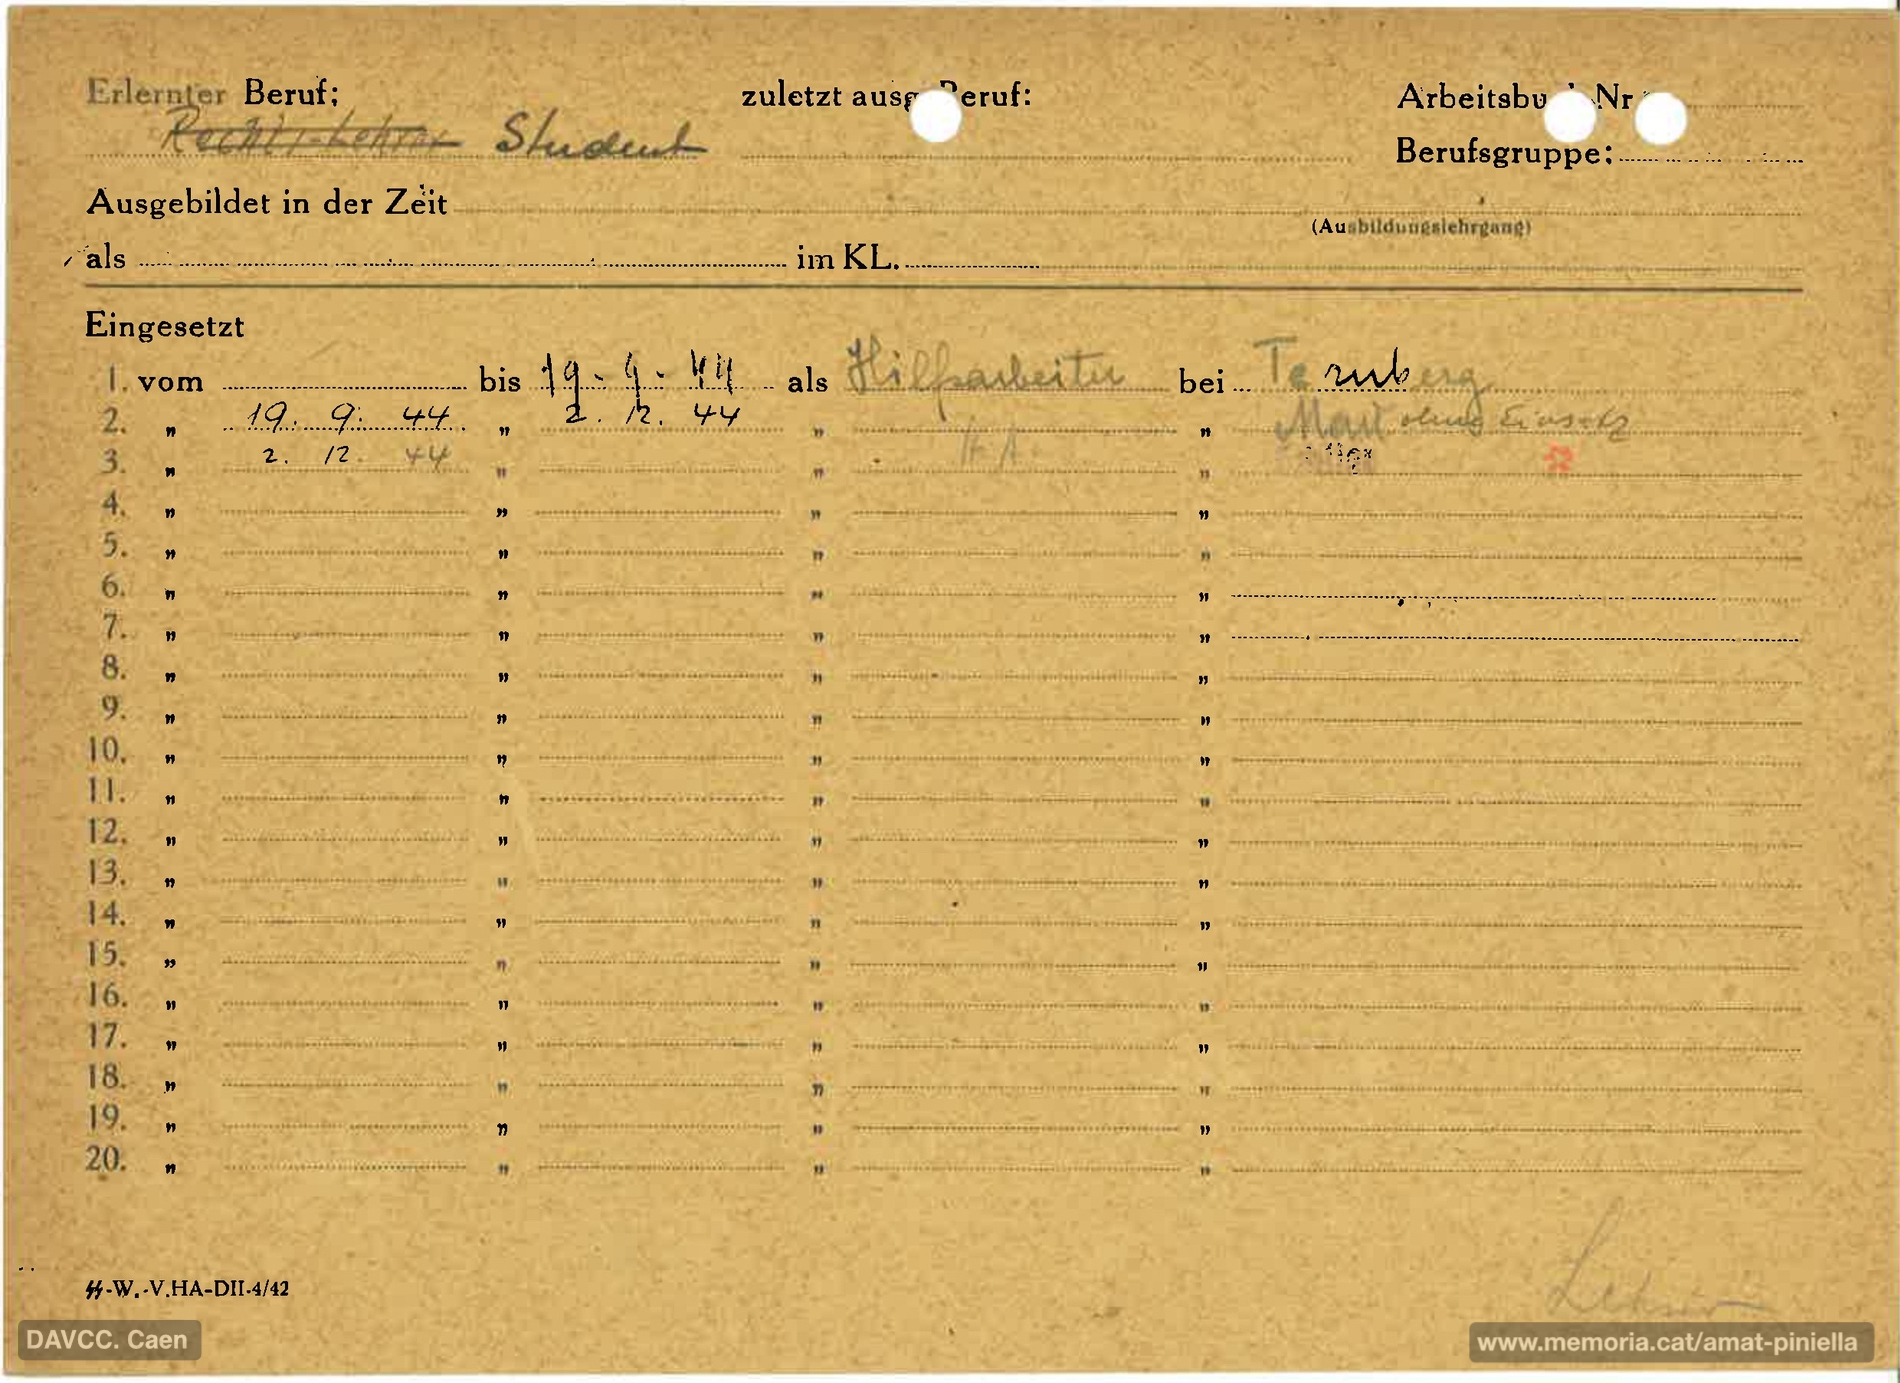 Erlernter Beruf: zuletzt ausg. Beruf: Arbeitsbuch Nr
Student
Berufsgruppe:
Ausgebildet in der Zeit
(Ausbildungslehrgang)
als im KL.
Eingesetzt
1. vom bis 19. 9. 44 als Hilfsarbeiter bei Ternberg
2. " 19. 9. 44 " 2. 12. 44 " " Mau ohne Einsatz
3. " 2. 12. 44 " " H.A. "
4. " " " "
5. " " " "
6. " " " "
7. " " " "
8. " " " "
9. " " " "
10. " " " "
11. " " " "
12. " " " "
13. " " " "
14. " " " "
15. " " " "
16. " " " "
17. " " " "
18. " " " "
19. " " " "
20. " " " "
Lehrer
SS-W.-V.HA-DII-4/42
DAVCC. Caen
www.memoria.cat/amat-piniella